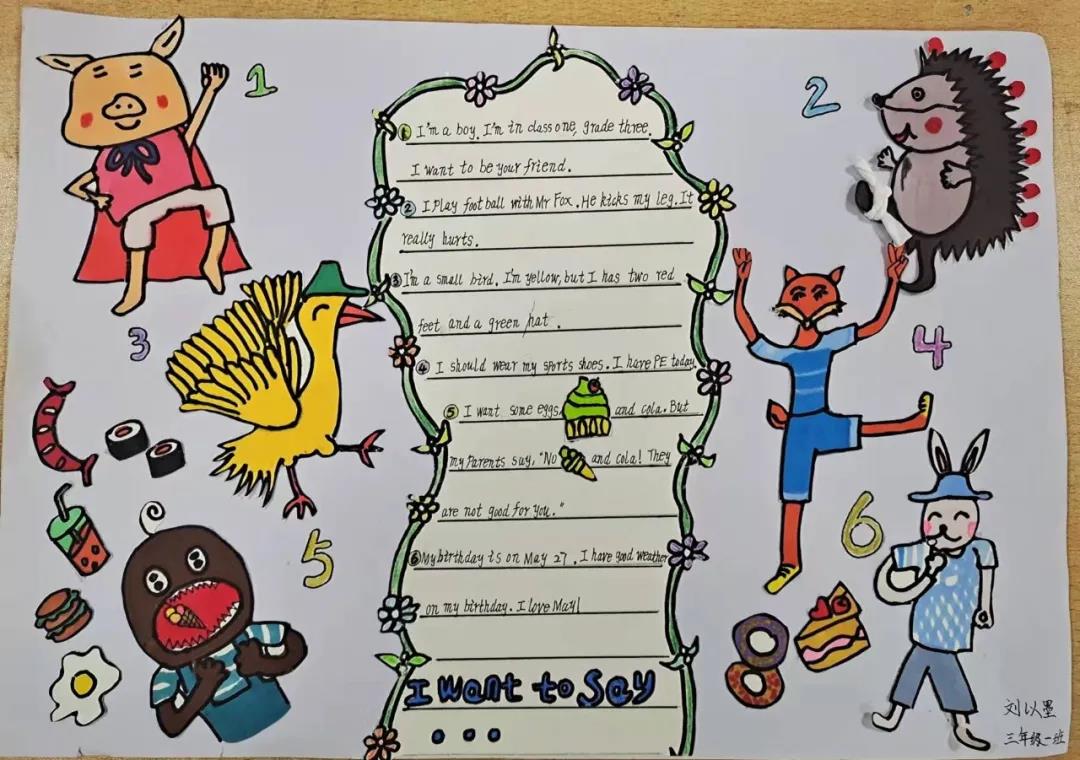 1
2
① I'm a boy. I'm in class one, grade three.
I want to be your friend.
② I Play football with Mr Fox. He kicks my leg. It
really hurts.
③ I'm a small bird. I'm yellow, but I has two red
feet and a green hat.
3
4
④ I should wear my sports shoes. I have PE today.
⑤ I want some eggs, and cola. But
my Parents say, "No and cola! They
are not good for you."
5
6
⑥ My birthday is on May 27. I have good weather
on my birthday. I love May!
I want to Say
...
刘以墨
三年级一班